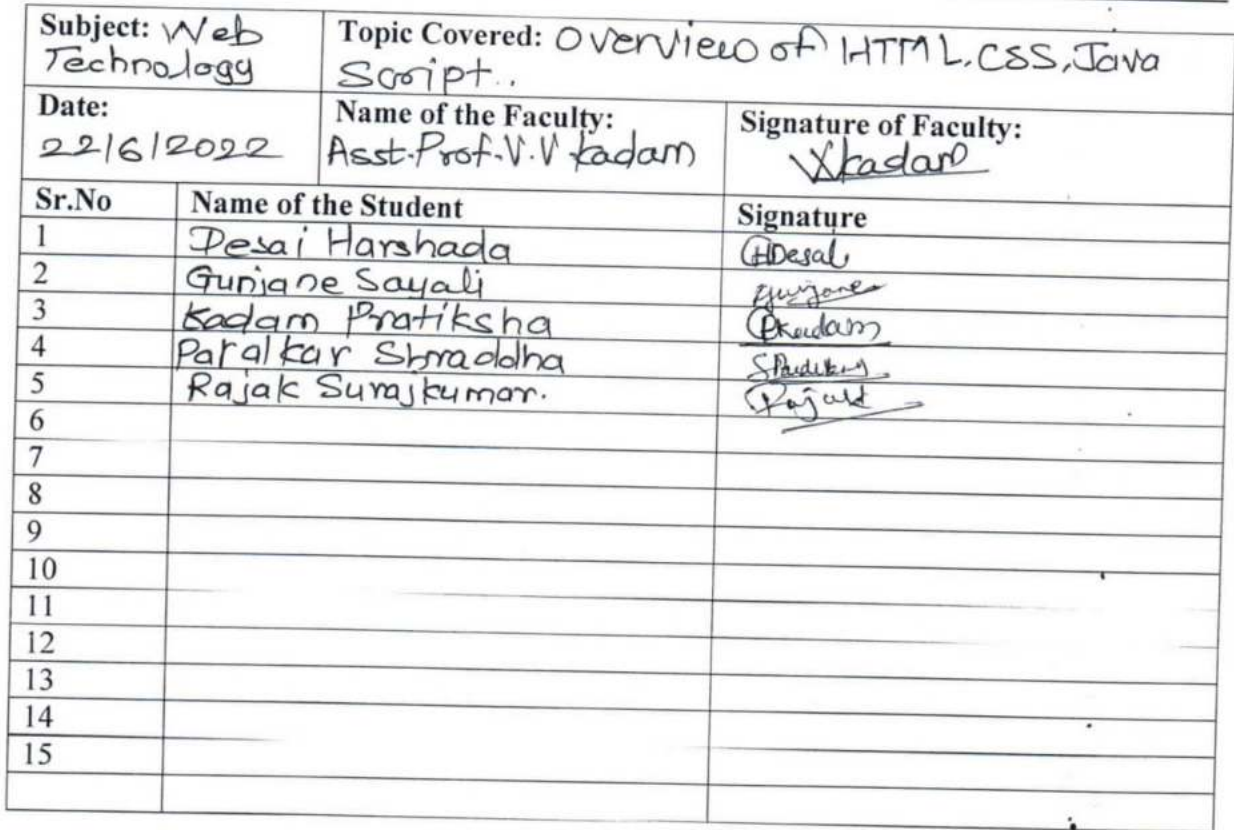 Subject: Web
Technology
Topic Covered: Overview of HTML, CSS, Java
Script..
Date:
22/6/2022
Name of the Faculty:
Asst. Prof. V. V kadam
Signature of Faculty:
VVkadam
Sr.No Name of the Student Signature
1 Desai Harshada HDesai
2 Gunjane Sayali Gunjane
3 Kadam Pratiksha PKadam
4 Paralkar Shraddha
5 Rajak Surajkumar. Rajak
6
7
8
9
10
11
12
13
14
15